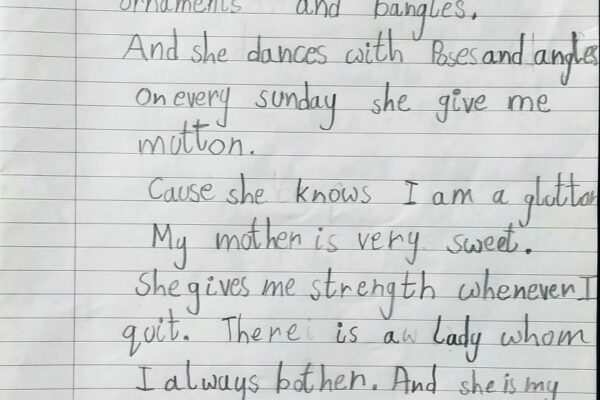 ornaments and bangles,
And she dances with Poses and angles
On every sunday she give me
mutton.
Cause she knows I am a glutton
My mother is very sweet.
She gives me strength whenever I
quit. There is a lady whom
I always bother. And she is my